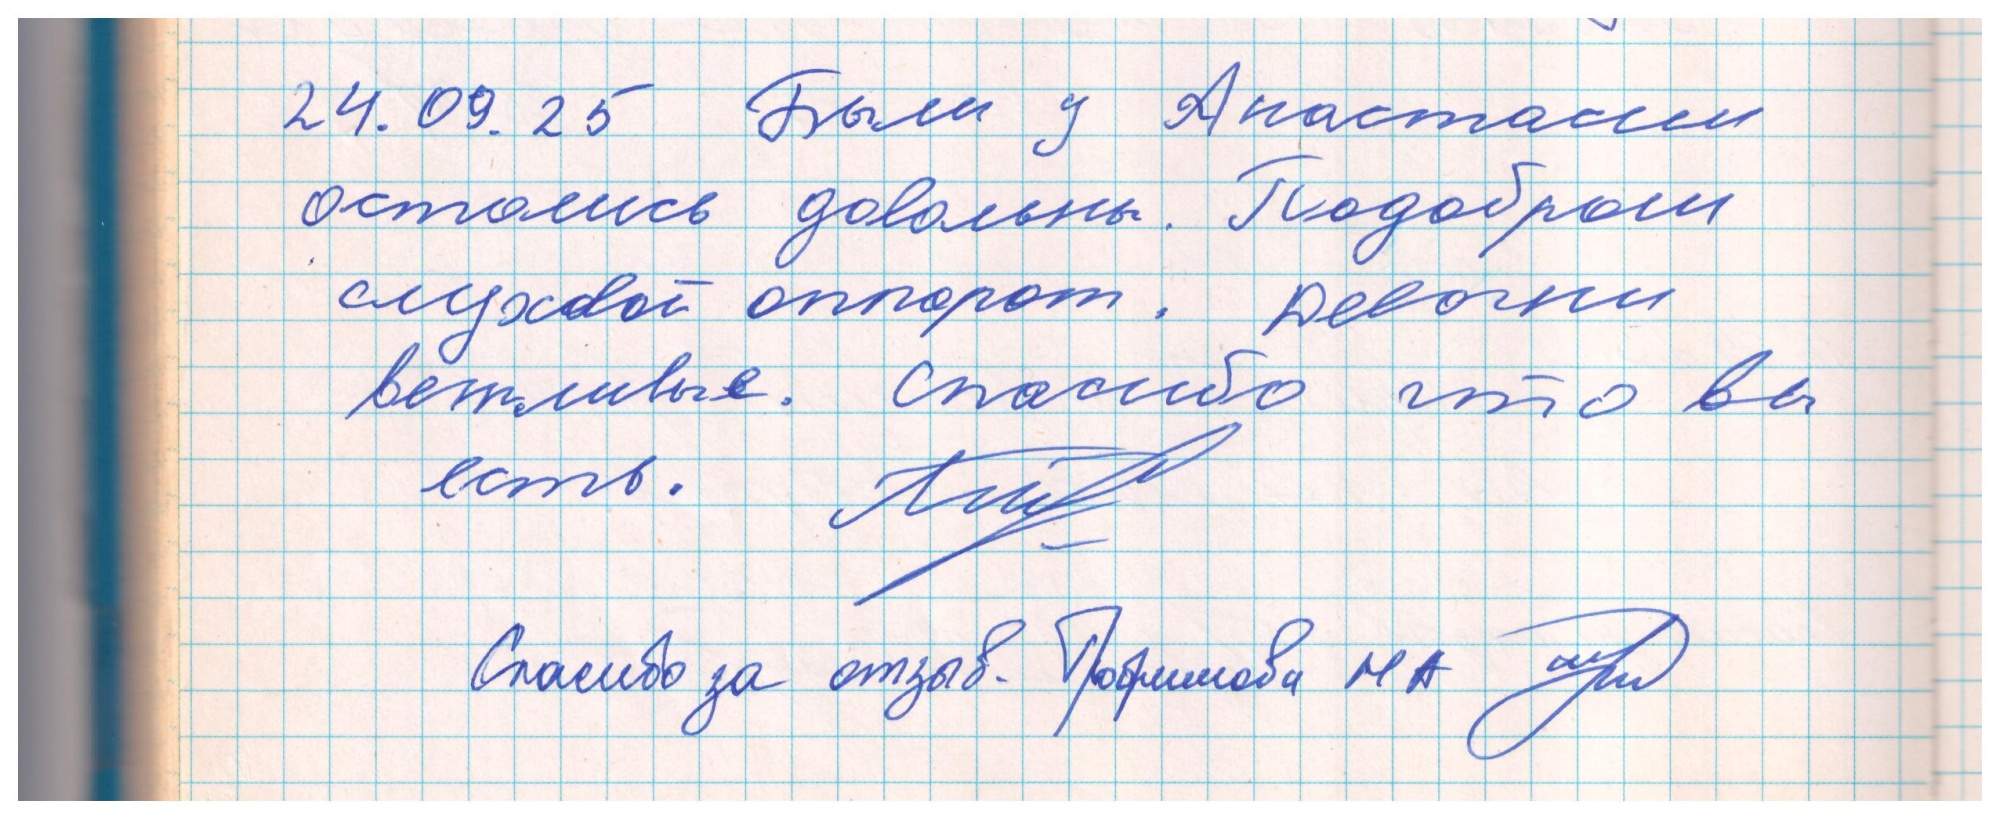 24.09.25 Были у Анастасии
остались довольны. Подобрали
слуховой аппарат. Девочки
вежливые. Спасибо что вы
есть.
Спасибо за отзыв. Трофимова Н А